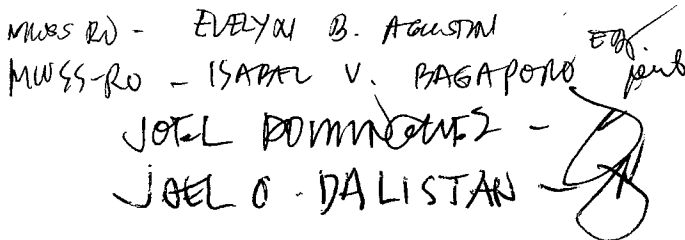 MWSS RO - EVELYN B. AGUSTIN
MWSS-RO - ISABEL V. BAGAPORO
JOEL DOMINGUEZ -
JOEL O. DALISTAN -